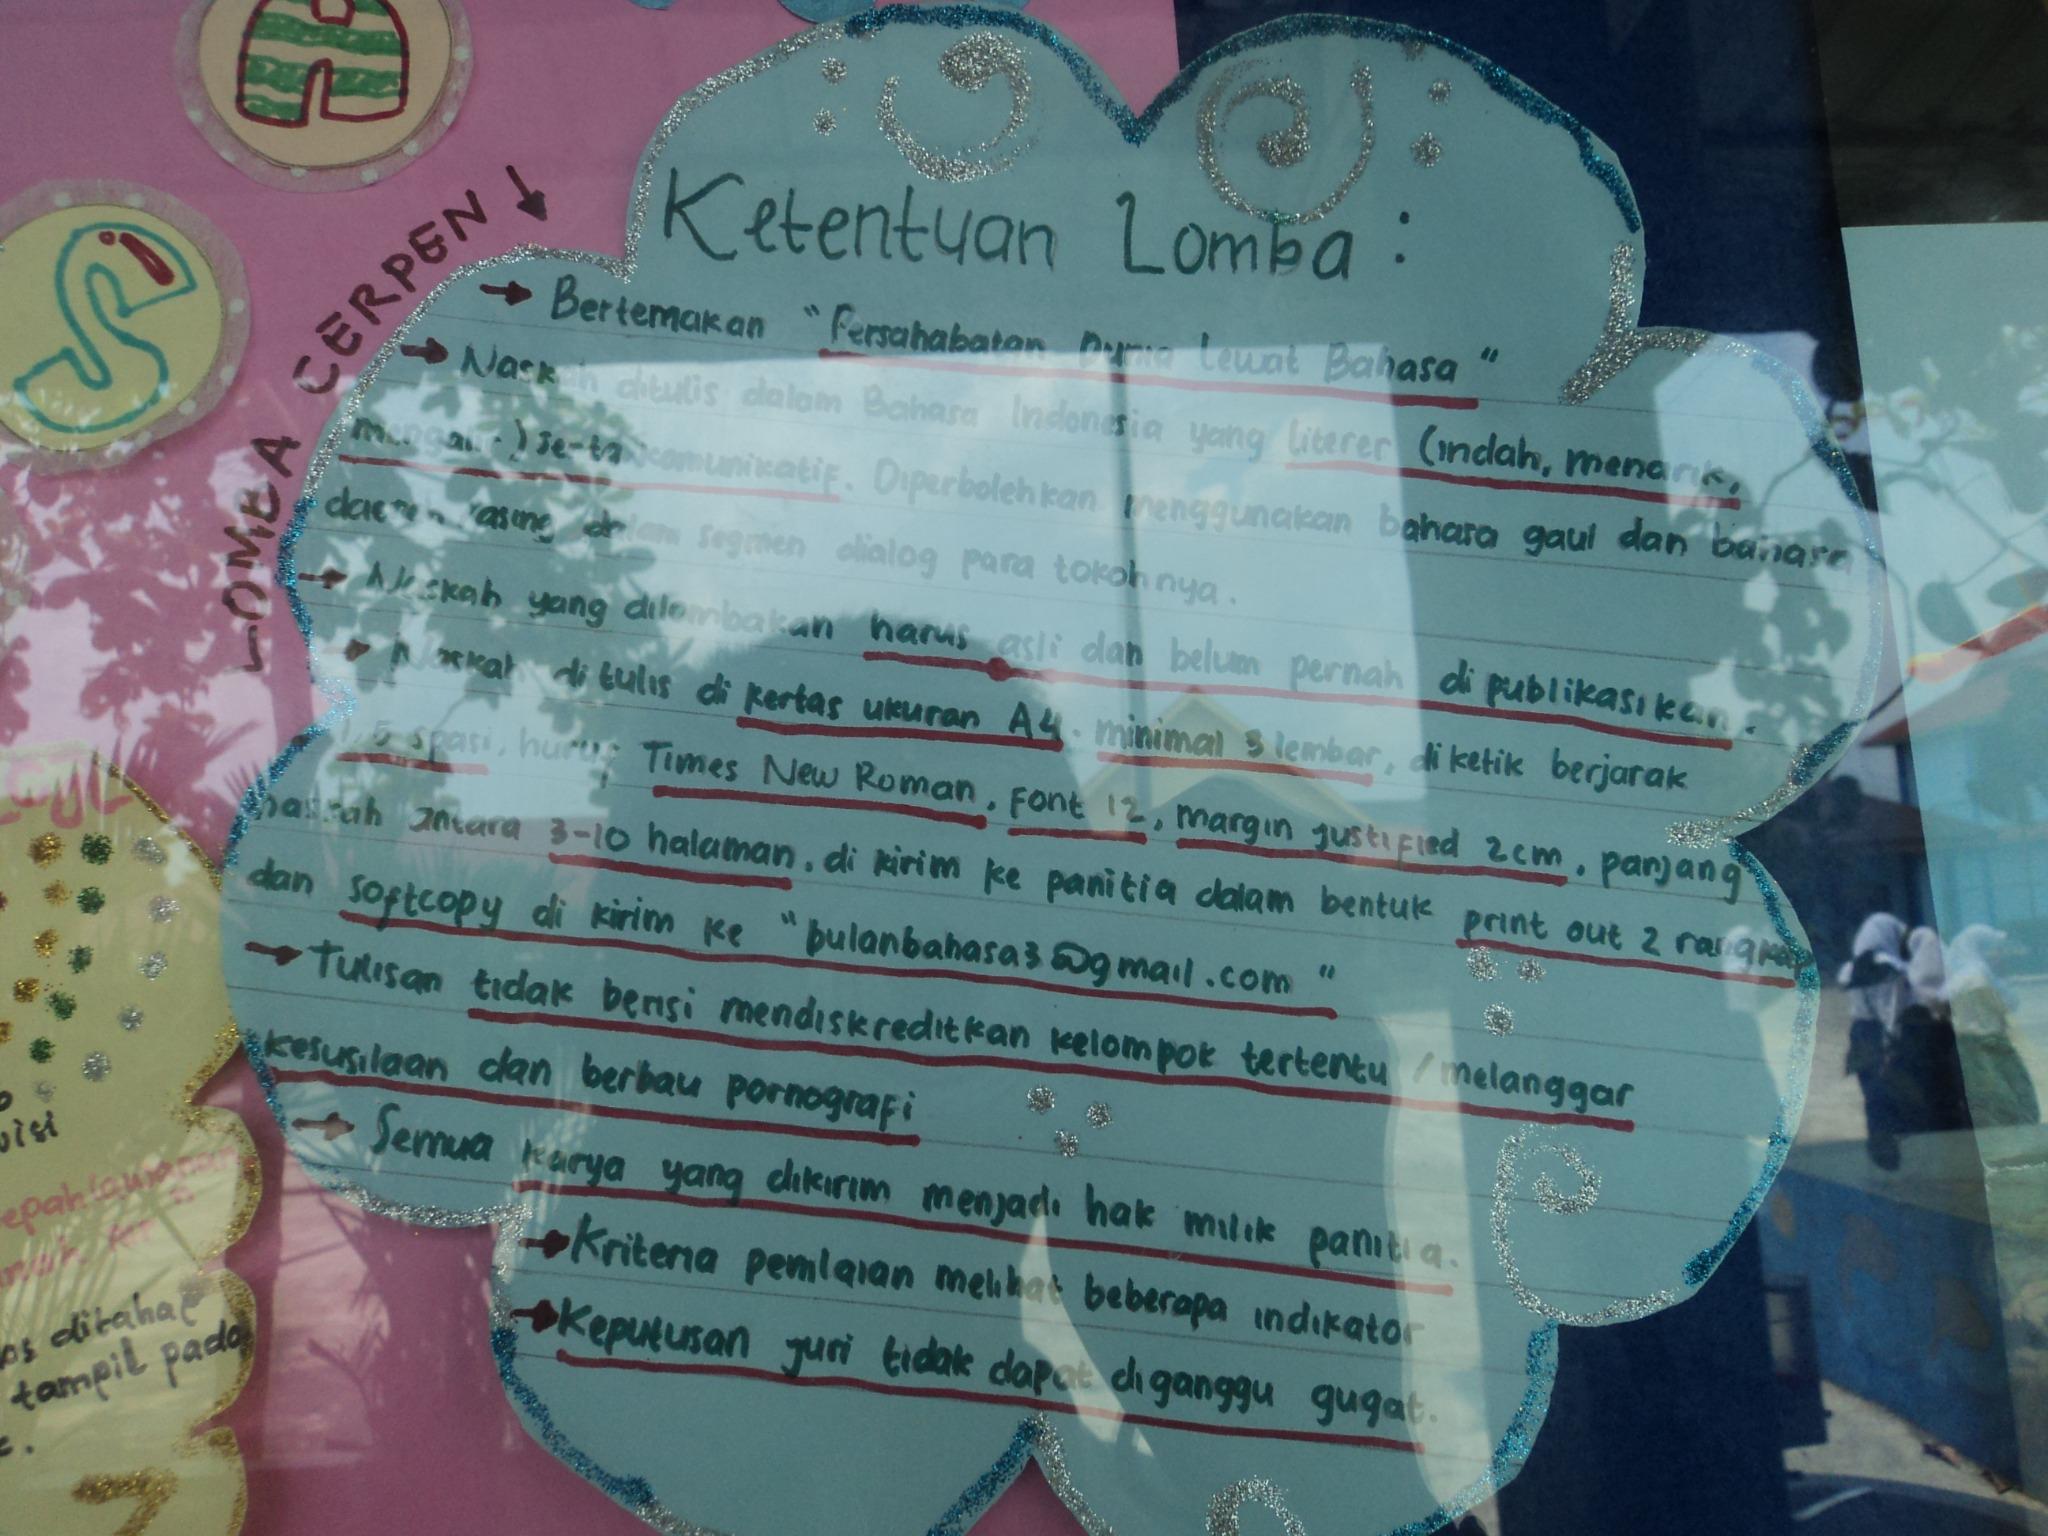 A
S
LOMBA CERPEN
Ketentuan Lomba :
→ Bertemakan "Persahabatan Dunia Lewat Bahasa"
→ Naskah ditulis dalam Bahasa Indonesia yang literer (indah, menarik,
mengalir) serta komunikatif. Diperbolehkan menggunakan bahasa gaul dan bahasa
daerah/asing dalam segmen dialog para tokohnya.
→ Naskah yang dilombakan harus asli dan belum pernah di publikasikan.
→ Naskah di tulis di kertas ukuran A4. minimal 3 lembar, di ketik berjarak
1,5 spasi, huruf Times New Roman, Font 12, margin justified 2cm, panjang
naskah antara 3-10 halaman, di kirim ke panitia dalam bentuk print out 2 rangkap
dan softcopy di kirim ke "bulanbahasa3@gmail.com"
→ Tulisan tidak berisi mendiskreditkan kelompok tertentu / melanggar
kesusilaan dan berbau pornografi
→ Semua karya yang dikirim menjadi hak milik panitia.
→ Kriteria penilaian melihat beberapa indikator
→ Keputusan juri tidak dapat di ganggu gugat.
ditahap
tampil pada